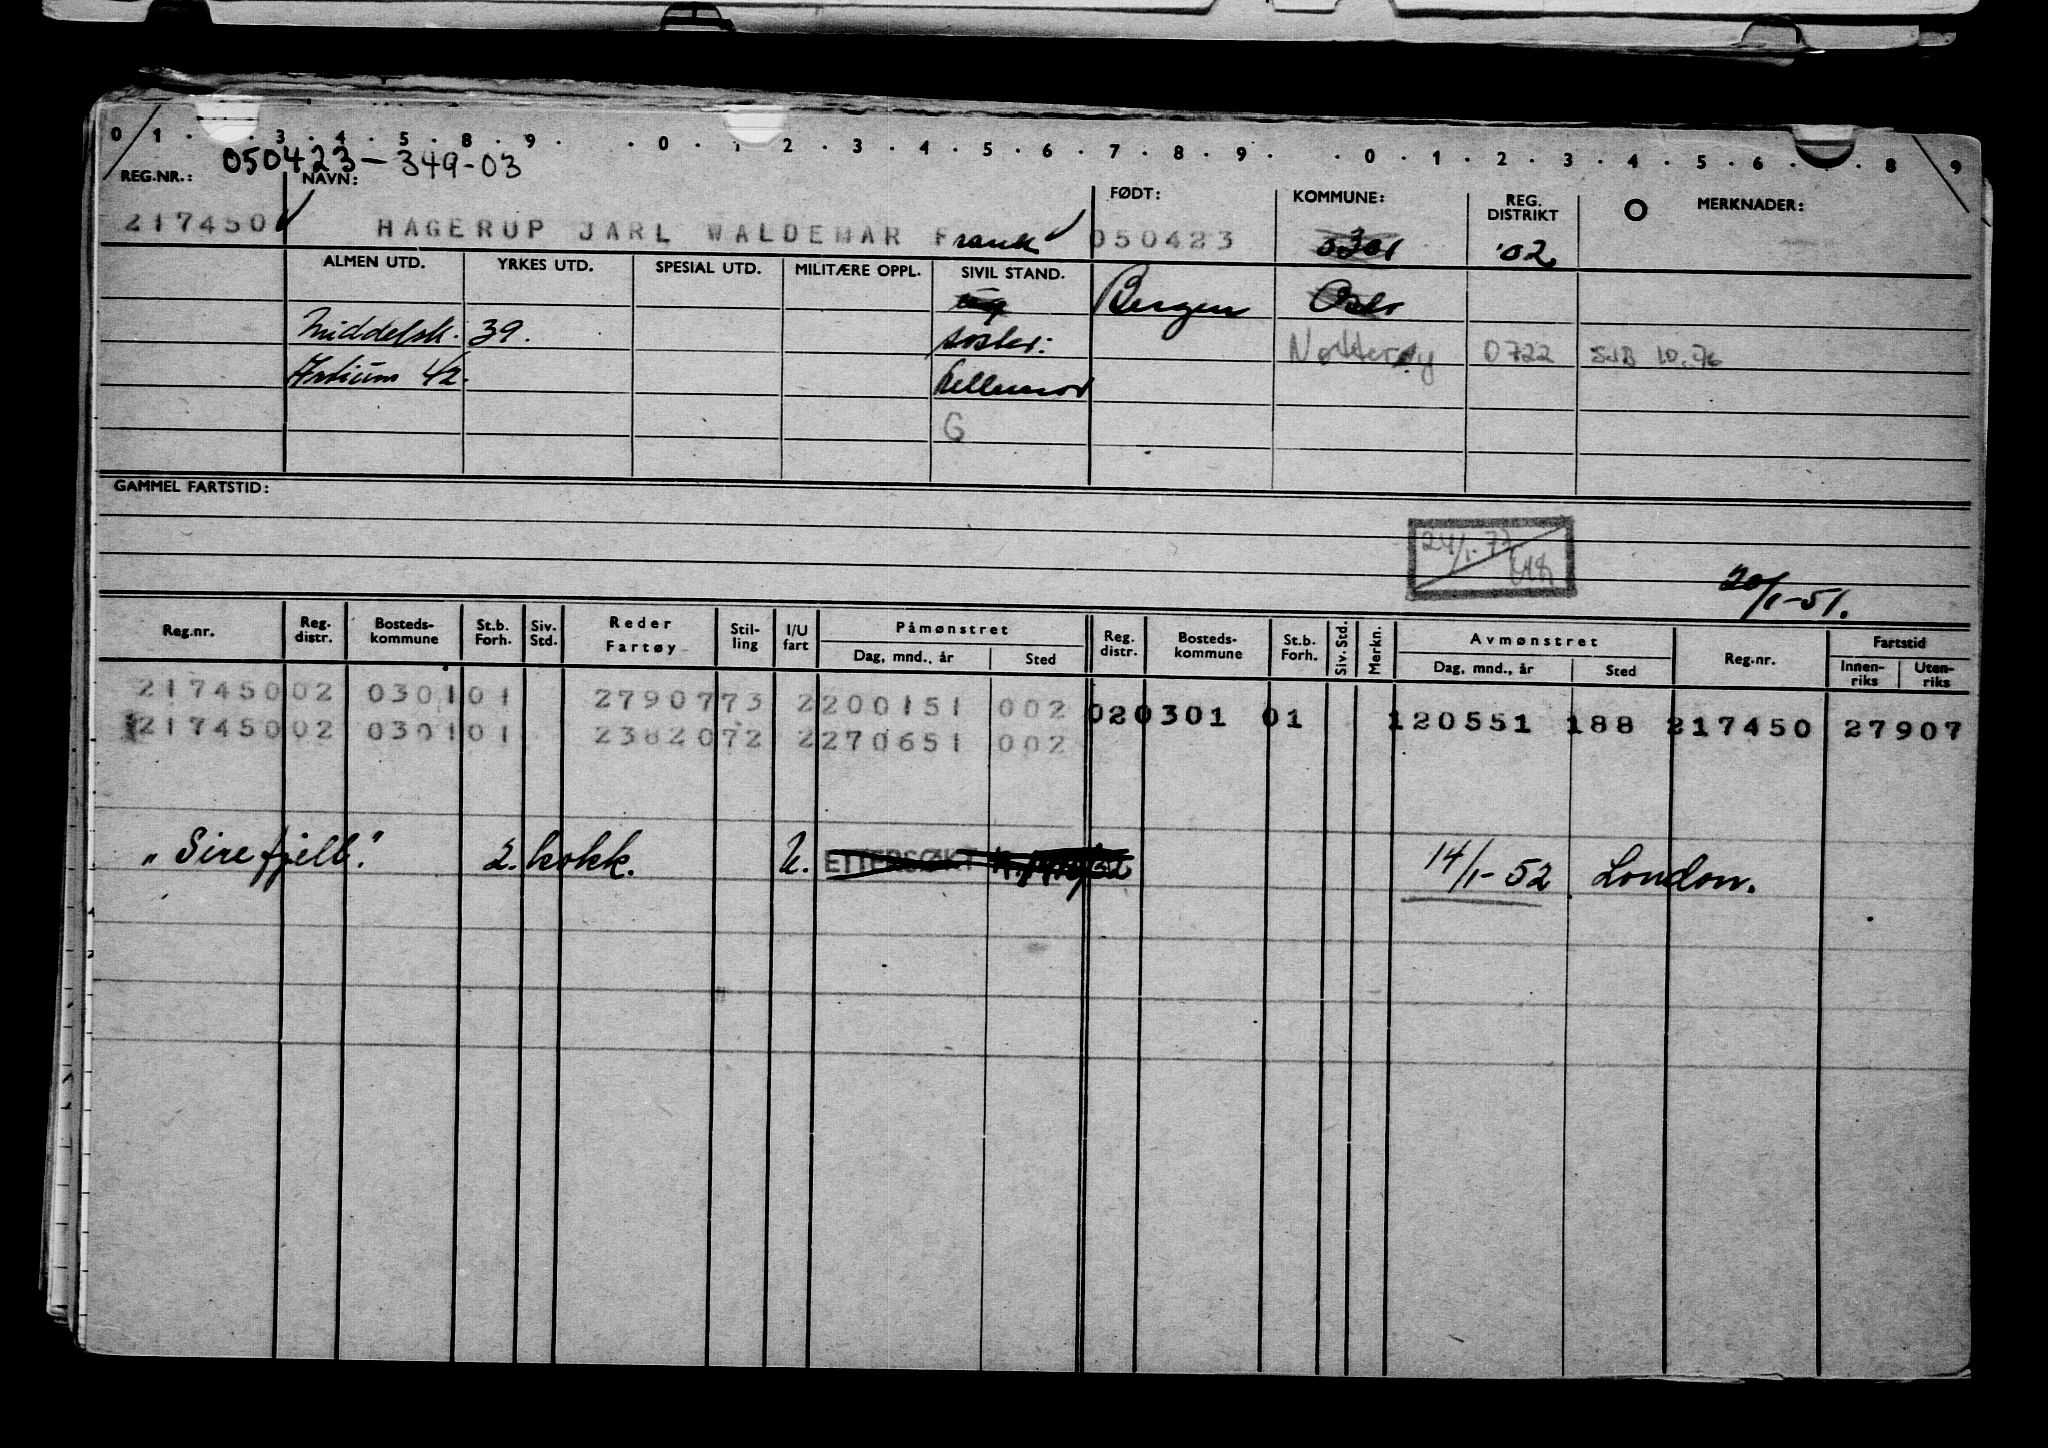 0 1 . . 3 . 4 . 5 . 8 . 9 . . 0 . 1 . 2 . 3 . 4 . 5 . 6 . 7 . 8 . 9 . . 0 . 1 . 2 . 3 . 4 . 5 . 6 . . 8 . 9
050423-349-03
REG.NR.: NAVN: FØDT: KOMMUNE: REG. DISTRIKT MERKNADER:
217450 HAGERUP JARL WALDEMAR Frank 050423 0301 02
ALMEN UTD. YRKES UTD. SPESIAL UTD. MILITÆRE OPPL. SIVIL STAND.
ug Bergen Oslo
Middelsk. 39. søster: Nøtterøy 0722 10.76
Artium 42. Bellemor
G
GAMMEL FARTSTID:
24/1-72
20/1-51.
Reg.nr. Reg. distr. Bosteds-kommune St.b. Forh. Siv. Std. Reder Fartøy Stil-ling I/U fart Påmønstret Dag, mnd., år Sted Reg. distr. Bosteds-kommune St.b. Forh. Siv. Std. Merkn. Avmønstret Dag, mnd., år Sted Reg.nr. Fartstid Innen-riks Uten-riks
217450 02 0301 01 27907 73 2 200151 002 02 0301 01 120551 188 217450 27907
217450 02 0301 01 23820 72 2 270651 002
"Sirefjell". 2. kokk. U. ETTERSØKT 14/1-52 London.